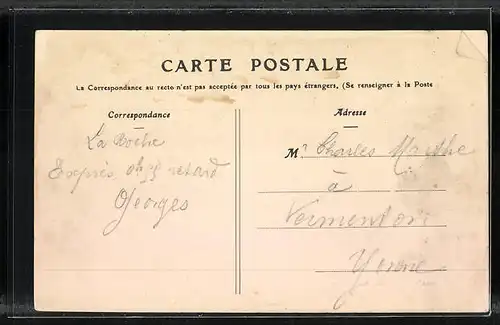 CARTE POSTALE
La Correspondance au recto n'est pas acceptée par tous les pays étrangers. (Se renseigner à la Poste
Correspondance
Adresse
La Roche
Express retard
Georges
M. Charles
à
Vermenton
Yonne